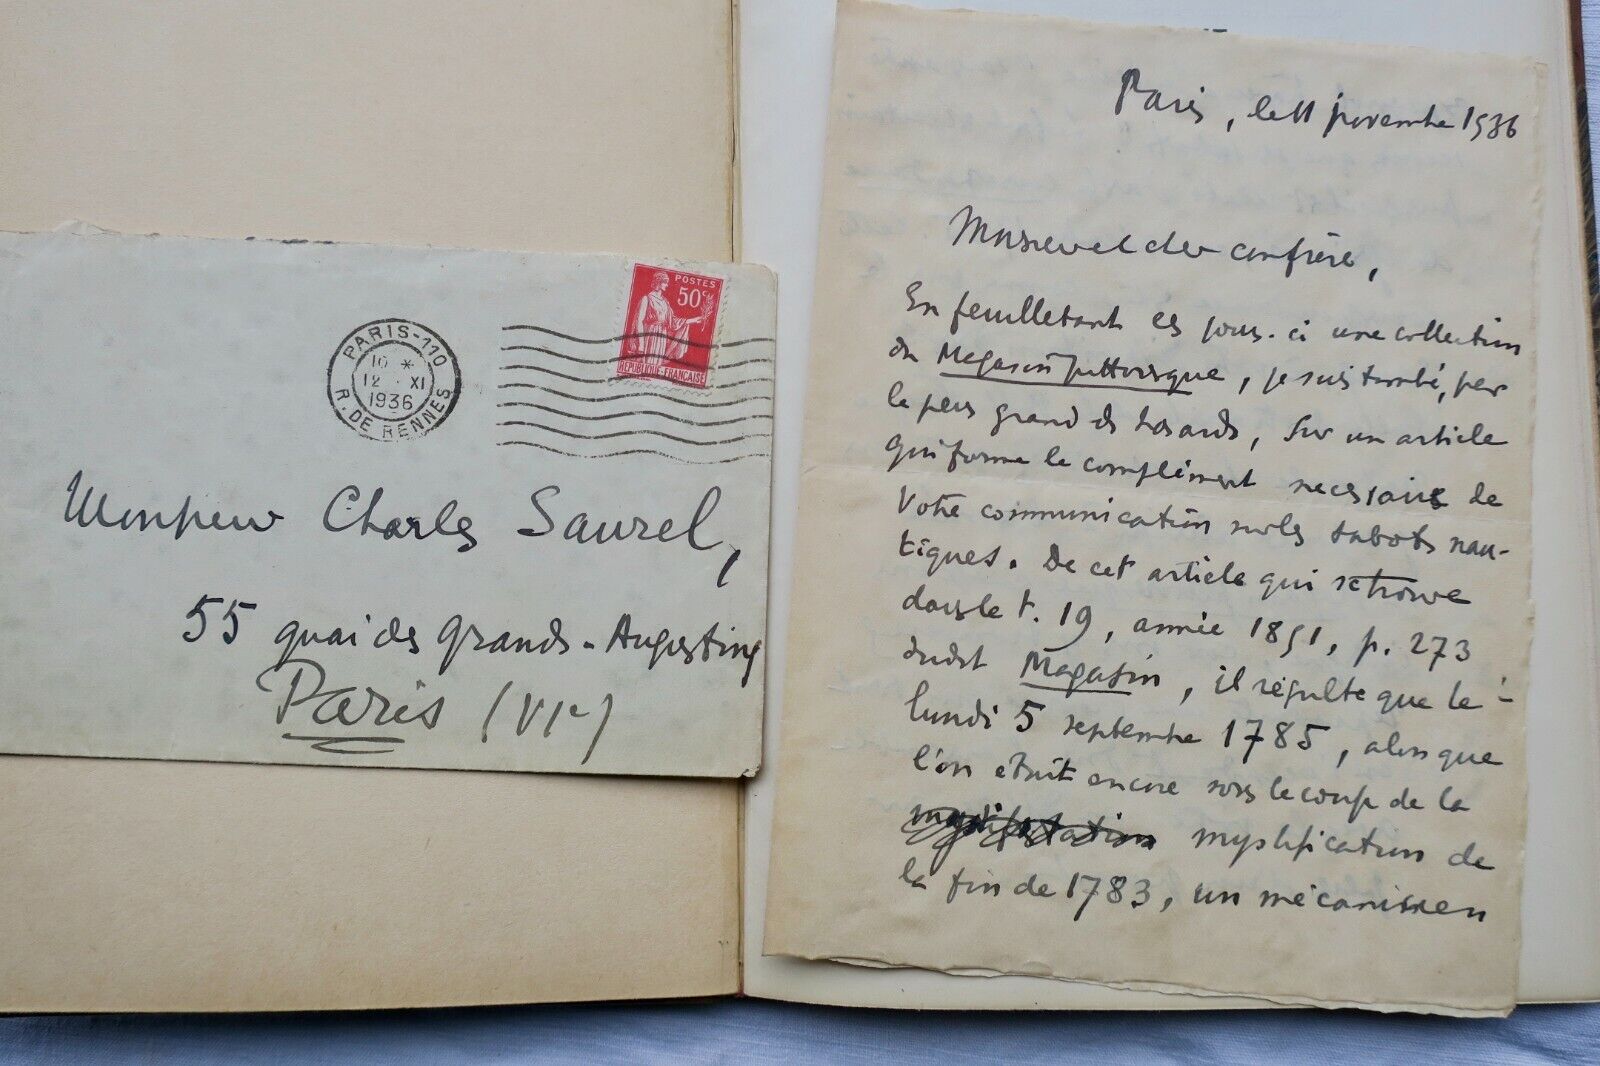 POSTES
50c
REPUBLIQUE-FRANÇAISE
PARIS-110
10 *
12 XI
1936
R. DE RENNES
Monsieur Charles Saurel,
55 quai des Grands-Augustins
Paris (VIe)
Paris, le 11 novembre 1936
Monsieur et cher confrère,
En feuilletant ces jours-ci une collection
du Magasin pittoresque, je suis tombé, par
le plus grand des hasards, sur un article
qui forme le complément nécessaire de
votre communication sur les sabots nau-
tiques. De cet article qui se trouve
dans le t. 19, année 1851, p. 273
dudit Magasin, il résulte que le
lundi 5 septembre 1785, alors que
l'on était encore sous le coup de la
mystification de
la fin de 1783, un mécanicien